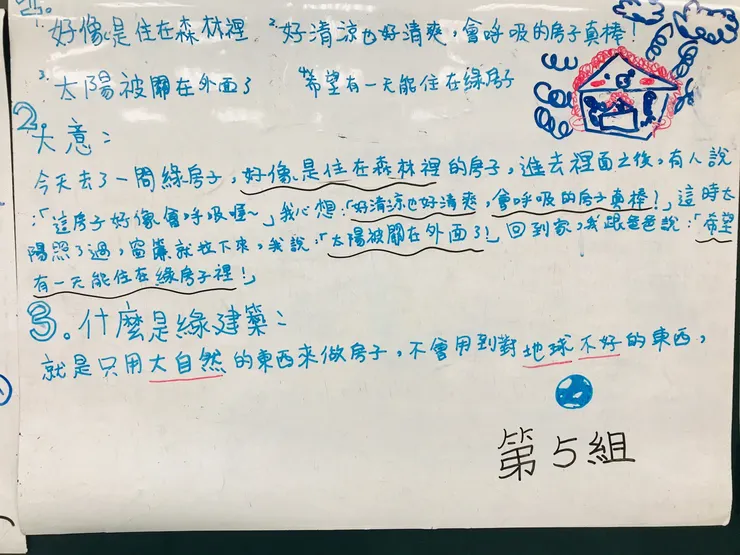 1. 好像是住在森林裡 2. 好清涼也好清爽，會呼吸的房子真棒！
3. 太陽被關在外面了 4. 希望有一天能住在綠房子
2. 大意：
今天去了一間綠房子，好像是住在森林裡的房子，進去裡面之後，有人說
：「這房子好像會呼吸喔～」我心想：「好清涼也好清爽，會呼吸的房子真棒！」這時太
陽照了過，窗簾就拉下來，我說：「太陽被關在外面了！」回到家，我跟爸爸說：「希望
有一天能住在綠房子裡！」
3。什麼是綠建築：
就是只用大自然的東西來做房子，不會用到對地球不好的東西，
第5組